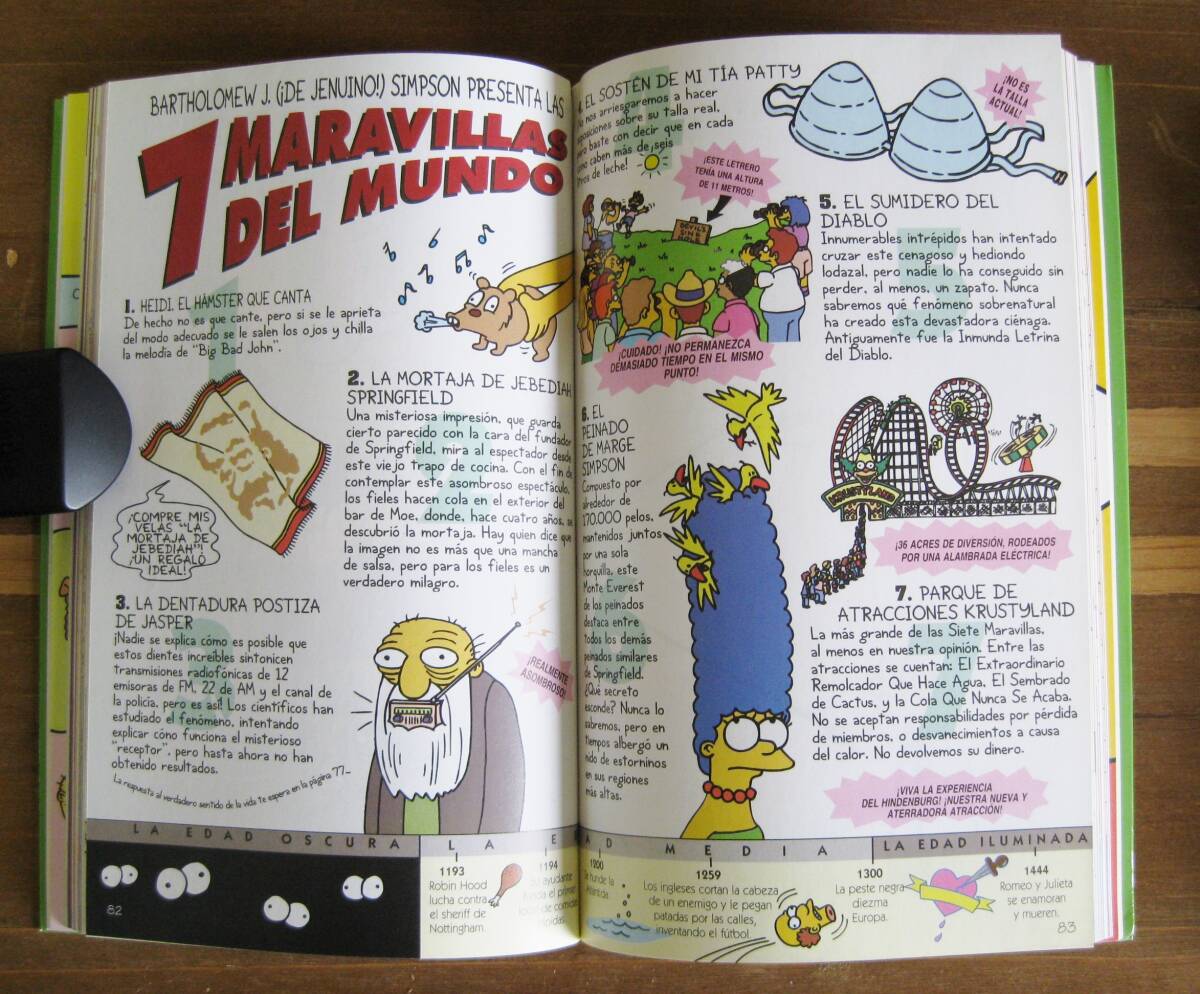 BARTHOLOMEW J. (¡DE JENUINO!) SIMPSON PRESENTA LAS
7 MARAVILLAS
DEL MUNDO
1. HEIDI, EL HÁMSTER QUE CANTA
De hecho no es que cante, pero si se le aprieta
del modo adecuado se le salen los ojos y chilla
la melodía de "Big Bad John".
2. LA MORTAJA DE JEBEDIAH
SPRINGFIELD
Una misteriosa impresión, que guarda
cierto parecido con la cara del fundador
de Springfield, mira al espectador desde
este viejo trapo de cocina. Con el fin de
contemplar este asombroso espectáculo,
los fieles hacen cola en el exterior del
bar de Moe, donde, hace cuatro años, se
descubrió la mortaja. Hay quien dice que
la imagen no es más que una mancha
de salsa, pero para los fieles es un
verdadero milagro.
¡COMPRE MIS
VELAS "LA
MORTAJA DE
JEBEDIAH"!
¡UN REGALO
IDEAL!
3. LA DENTADURA POSTIZA
DE JASPER
¡Nadie se explica cómo es posible que
estos dientes increíbles sintonicen
transmisiones radiofónicas de 12
emisoras de FM, 22 de AM y el canal de
la policía, pero es así! Los científicos han
estudiado el fenómeno, intentando
explicar cómo funciona el misterioso
"receptor", pero hasta ahora no han
obtenido resultados.
¡REALMENTE
ASOMBROSO!
La respuesta al verdadero sentido de la vida te espera en la página 77-
LA EDAD OSCURA
82
1193
Robin Hood
lucha contra
el sheriff de
Nottingham.
1194
EL SOSTÉN DE MI TÍA PATTY
nos arriesgaremos a hacer
sobre su talla real,
baste con decir que en cada
caben más de ¡seis
de leche!
¡NO ES
LA TALLA
ACTUAL!
¡ESTE LETRERO
TENÍA UNA ALTURA
DE 11 METROS!
DEVIL'S
SINK
HOLE
¡CUIDADO! ¡NO PERMANEZCA
DEMASIADO TIEMPO EN EL MISMO
PUNTO!
5. EL SUMIDERO DEL
DIABLO
Innumerables intrépidos han intentado
cruzar este cenagoso y hediondo
lodazal, pero nadie lo ha conseguido sin
perder, al menos, un zapato. Nunca
sabremos qué fenómeno sobrenatural
ha creado esta devastadora ciénaga.
Antiguamente fue la Inmunda Letrina
del Diablo.
6. EL
PEINADO
DE MARGE
SIMPSON
Compuesto por
alrededor de
170.000 pelos,
mantenidos juntos
por una sola
horquilla, este
Monte Everest
de los peinados
destaca entre
todos los demás
peinados similares
de Springfield.
¿Qué secreto
esconde? Nunca lo
sabremos, pero en
tiempos albergó un
nido de estorninos
en sus regiones
más altas.
KRUSTYLAND
¡36 ACRES DE DIVERSIÓN, RODEADOS
POR UNA ALAMBRADA ELÉCTRICA!
7. PARQUE DE
ATRACCIONES KRUSTYLAND
La más grande de las Siete Maravillas,
al menos en nuestra opinión. Entre las
atracciones se cuentan: El Extraordinario
Remolcador Que Hace Agua, El Sembrado
de Cactus, y la Cola Que Nunca Se Acaba.
No se aceptan responsabilidades por pérdida
de miembros, o desvanecimientos a causa
del calor. No devolvemos su dinero.
¡VIVA LA EXPERIENCIA
DEL HINDENBURG! ¡NUESTRA NUEVA Y
ATERRADORA ATRACCIÓN!
LA EDAD MEDIA
LA EDAD ILUMINADA
1200
Se hunde la
1259
Los ingleses cortan la cabeza
de un enemigo y le pegan
patadas por las calles,
inventando el fútbol.
1300
La peste negra
diezma
Europa.
1444
Romeo y Julieta
se enamoran
y mueren.
83